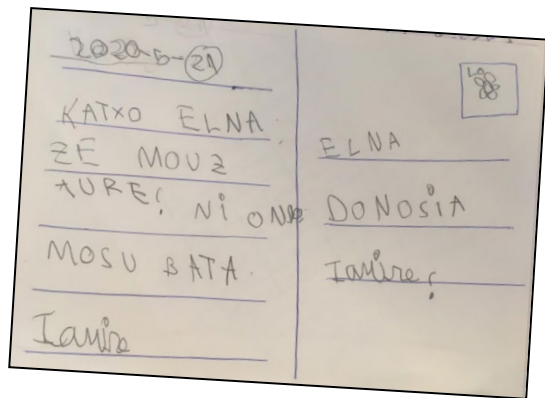 2020-5-21
KATXO ELNA
ZE MOUZ
AURE! Ni ONDO
MOSU BATA.
Iamire
ELNA
DONOSiA
Iamire!